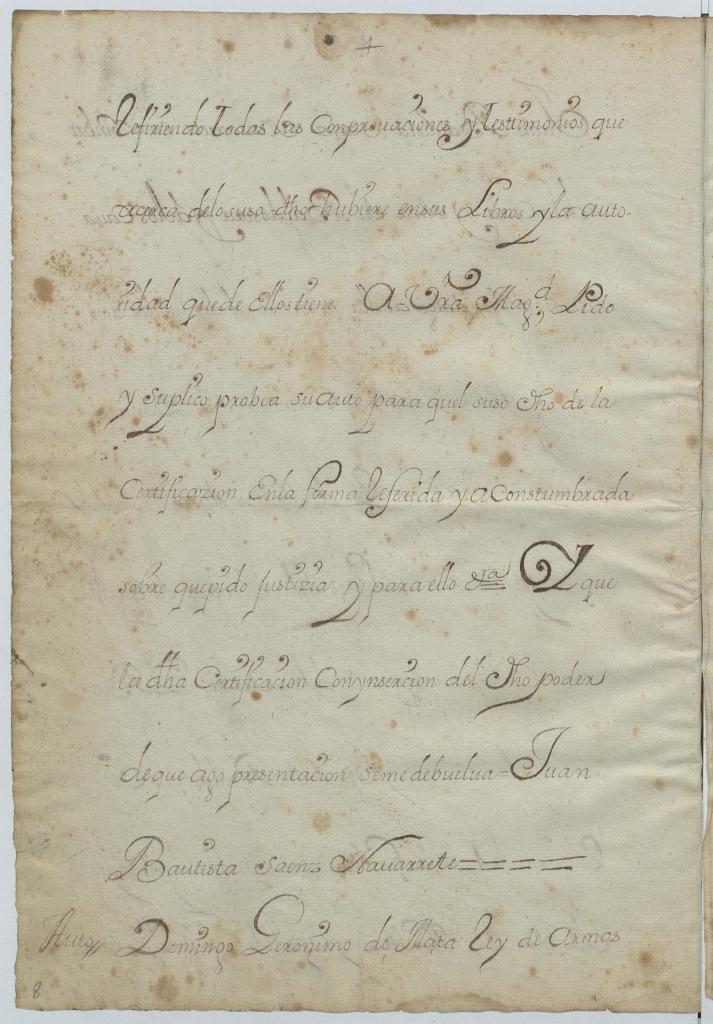 +
Refiriendo todas las Conprouaciones y testimonios que
acerca delo suso dho hubiere ensus Libros y la auto-
ridad que de Ellos tiene A Vrã Mag.d Pido
y suplico probea su auto para quel suso dho de la
Certificazion Enla forma Referida y aConstumbrada
sobre que pido justizia y para ello &ta Y que
la dha Certificacion Conynsercion del dho poder
de que ago presentacion se me debuelua = Juan
Bautista Saenz Nauarrete = = = =
Auto// Domingo Geronimo de Mata Rey de Armas
8